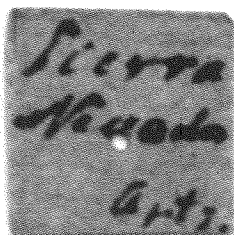 Sierra
Nevada
Arts.